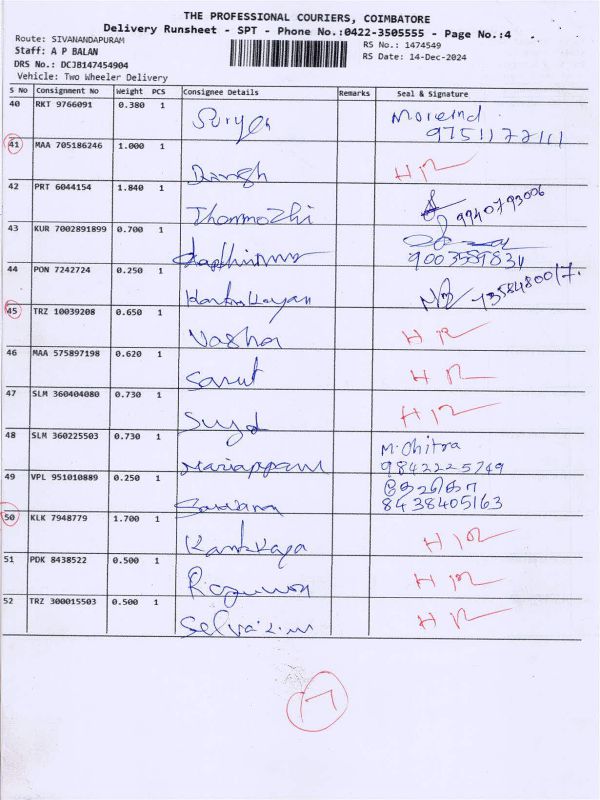 THE PROFESSIONAL COURIERS, COIMBATORE
Delivery Runsheet - SPT - Phone No.:0422-3505555 - Page No.:4
Route: SIVANANDAPURAM
RS No.: 1474549
Staff: A P BALAN
RS Date: 14-Dec-2024
DRS No.: DCJB147454904
Vehicle: Two Wheeler Delivery
S No Consignment No Weight PCS Consignee Details Remarks Seal & Signature
40 RKT 9766091 0.380 1 Surya
9751177111
41 MAA 705186246 1.000 1 H R
42 PRT 6044154 1.840 1 Thommozhi 9940793006
43 KUR 7002891899 0.700 1
44 PON 7242724 0.250 1
45 TRZ 10039208 0.650 1 H R
46 MAA 575897198 0.620 1 H R
47 SLM 360404080 0.730 1 H R
48 SLM 360225503 0.730 1 Mariappan M. Chitra
9842225749
49 VPL 951010889 0.250 1
8438405163
50 KLK 7948779 1.700 1 H R
51 PDK 8438522 0.500 1 H R
52 TRZ 300015503 0.500 1 H R
7